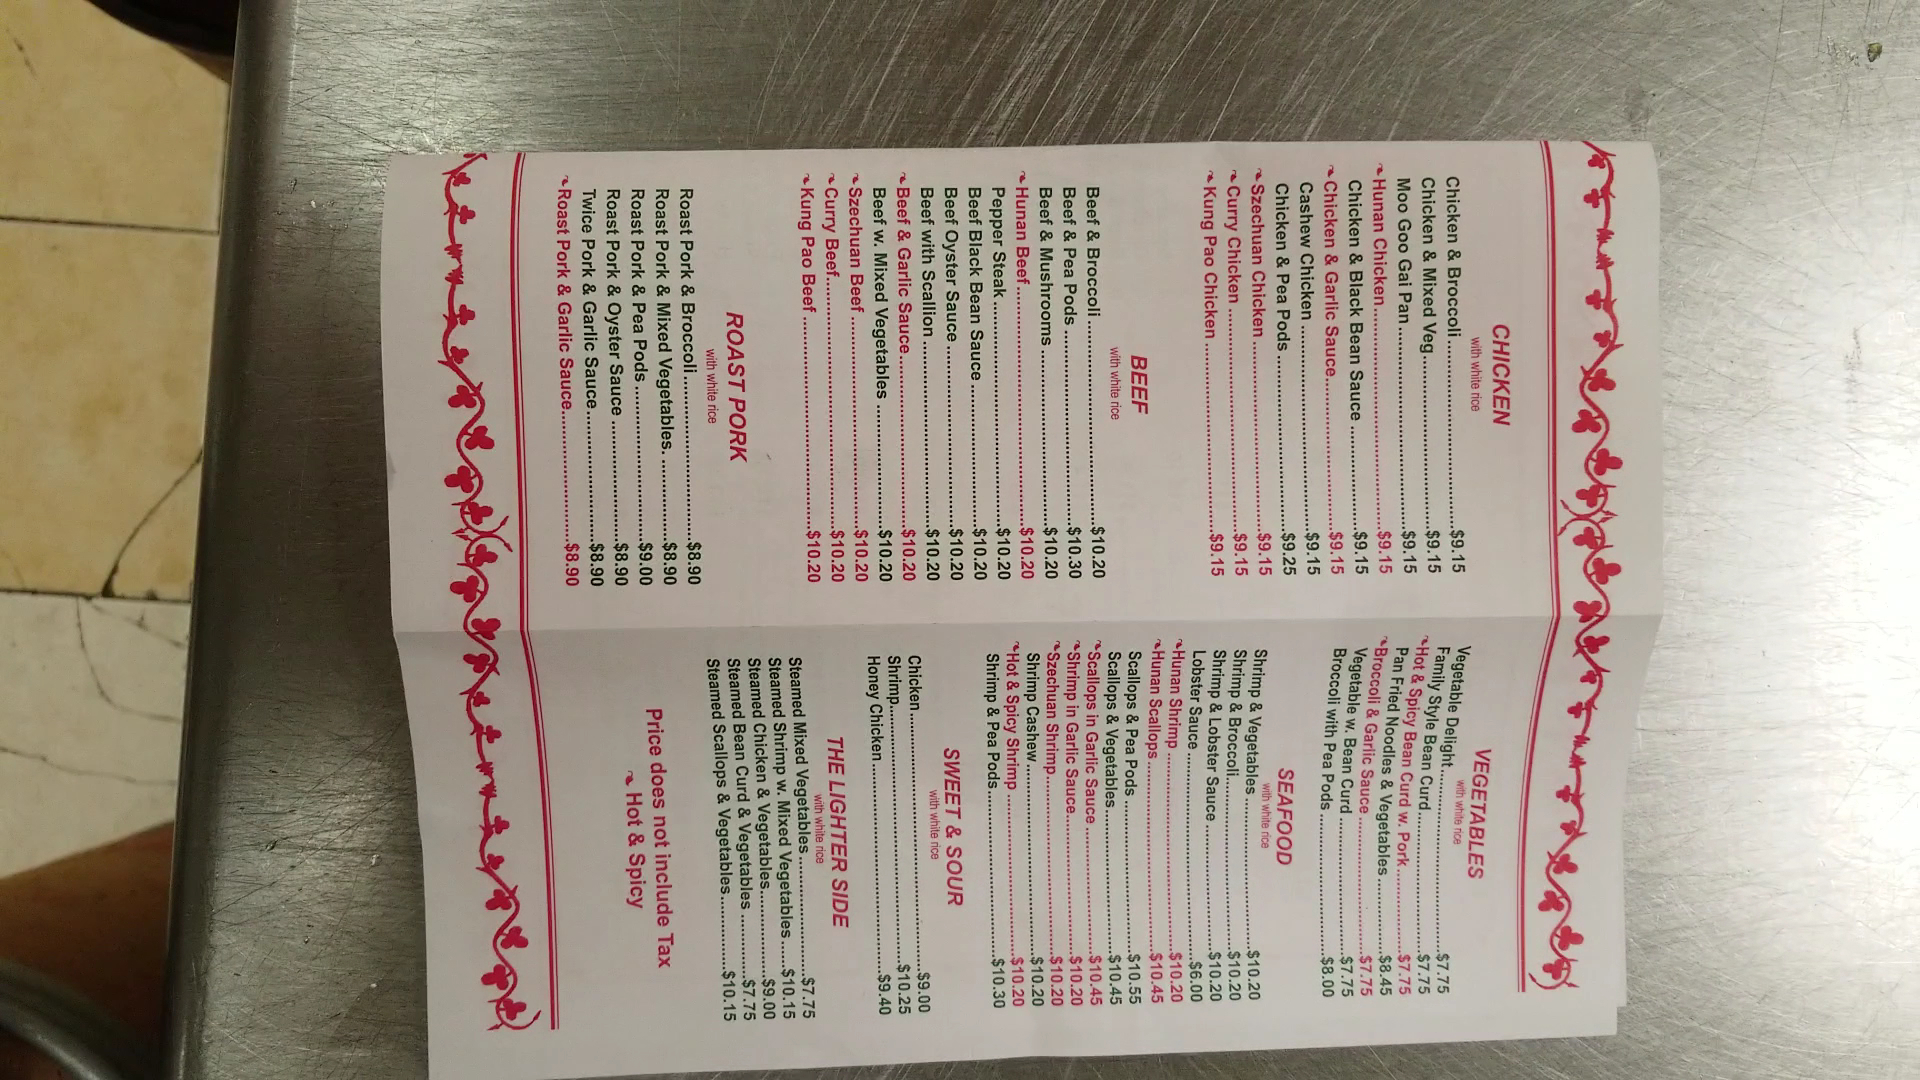 CHICKEN
with white rice
Chicken & Broccoli ........ $9.15
Chicken & Mixed Veg ........ $9.15
Moo Goo Gai Pan ........ $9.15
Hunan Chicken ........ $9.15
Chicken & Black Bean Sauce ........ $9.15
Chicken & Garlic Sauce ........ $9.15
Cashew Chicken ........ $9.15
Chicken & Pea Pods ........ $9.25
Szechuan Chicken ........ $9.15
Curry Chicken ........ $9.15
Kung Pao Chicken ........ $9.15
BEEF
with white rice
Beef & Broccoli ........ $10.20
Beef & Pea Pods ........ $10.30
Beef & Mushrooms ........ $10.20
Hunan Beef ........ $10.20
Pepper Steak ........ $10.20
Beef Black Bean Sauce ........ $10.20
Beef Oyster Sauce ........ $10.20
Beef with Scallion ........ $10.20
Beef & Garlic Sauce ........ $10.20
Beef w. Mixed Vegetables ........ $10.20
Szechuan Beef ........ $10.20
Curry Beef ........ $10.20
Kung Pao Beef ........ $10.20
ROAST PORK
with white rice
Roast Pork & Broccoli ........ $8.90
Roast Pork & Mixed Vegetables. ........ $8.90
Roast Pork & Pea Pods ........ $9.00
Roast Pork & Oyster Sauce ........ $8.90
Twice Pork & Garlic Sauce ........ $8.90
Roast Pork & Garlic Sauce ........ $8.90
VEGETABLES
with white rice
Vegetable Delight ........ $7.75
Family Style Bean Curd ........ $7.75
Hot & Spicy Bean Curd w. Pork ........ $7.75
Pan Fried Noodles & Vegetables ........ $8.45
Broccoli & Garlic Sauce ........ $7.75
Vegetable w. Bean Curd ........ $7.75
Broccoli with Pea Pods ........ $8.00
SEAFOOD
with white rice
Shrimp & Vegetables ........ $10.20
Shrimp & Broccoli ........ $10.20
Shrimp & Lobster Sauce ........ $10.20
Lobster Sauce ........ $6.00
Hunan Shrimp ........ $10.20
Hunan Scallops ........ $10.45
Scallops & Pea Pods ........ $10.55
Scallops & Vegetables ........ $10.45
Scallops in Garlic Sauce ........ $10.45
Shrimp in Garlic Sauce ........ $10.20
Szechuan Shrimp ........ $10.20
Shrimp Cashew ........ $10.20
Hot & Spicy Shrimp ........ $10.20
Shrimp & Pea Pods ........ $10.30
SWEET & SOUR
with white rice
Chicken ........ $9.00
Shrimp ........ $10.25
Honey Chicken ........ $9.40
THE LIGHTER SIDE
with white rice
Steamed Mixed Vegetables ........ $7.75
Steamed Shrimp w. Mixed Vegetables ........ $10.15
Steamed Chicken & Vegetables ........ $9.00
Steamed Bean Curd & Vegetables ........ $7.75
Steamed Scallops & Vegetables ........ $10.15
Price does not include Tax
Hot & Spicy